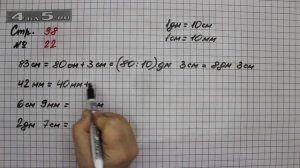 4.05.0
Стр. 98
№ 22
1дм = 10см
1см = 10мм
83см = 80см + 3см = (80:10)дм 3см = 8дм 3см
42мм = 40мм+
6см 9мм = м
2дм 7см =